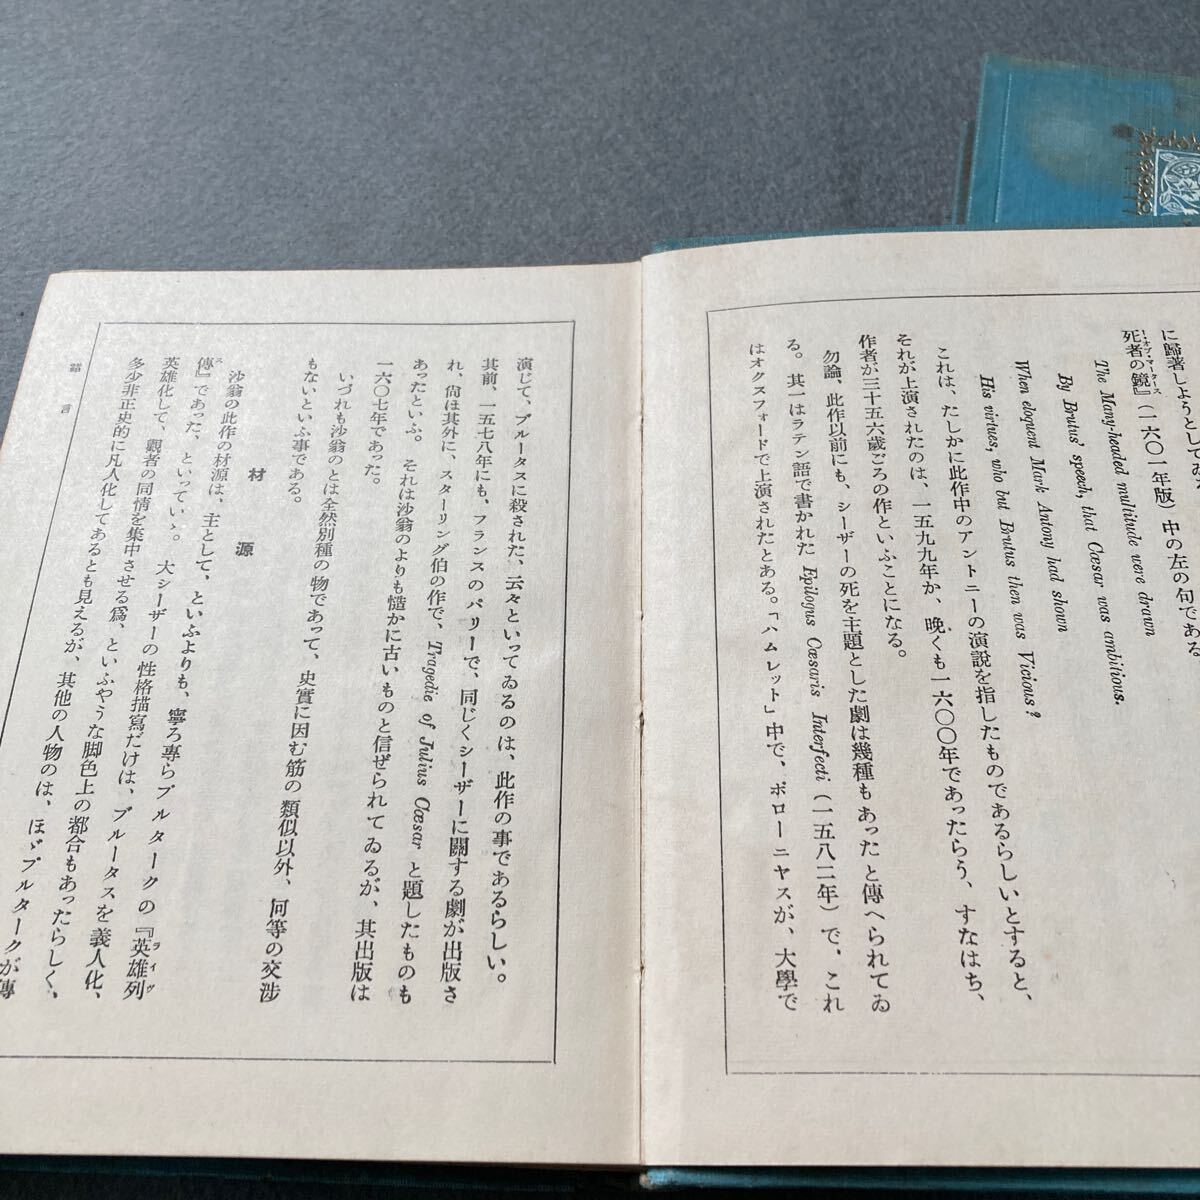 に歸著しようとしてみ
死者の鏡』（一六〇一年版）中の左の句である
ー・オブ・マータース
The Many-headed multitude were drawn
By Brutus' speech, that Cæsar was ambitious.
When eloquent Mark Antony had shown
His virtues, who but Brutus then was Vicious?
これは、たしかに此作中のアントニーの演説を指したものであるらしいとすると、
それが上演されたのは、一五九九年か、晩くも一六〇〇年であったらう、すなはち、
作者が三十五六歲ごろの作といふことになる。
勿論、此作以前にも、シーザーの死を主題とした劇は幾種もあったと傳へられてゐ
る。其一はラテン語で書かれた Epilogus Cæsaris Interfecti（一五八二年）で、これ
はオクスフォードで上演されたとある。「ハムレット」中で、ポローニヤスが、大學で
演じて、ブルータスに殺された、云々といってゐるのは、此作の事であるらしい。
其前、一五七八年にも、フランスのパリーで、同じくシーザーに關する劇が出版さ
れ、尙ほ其外に、スターリング伯の作で、Tragedie of Julius Cæsar と題したものも
あったといふ。それは沙翁のよりも慥かに古いものと信ぜられてゐるが、其出版は
一六〇七年であった。
いづれも沙翁のとは全然別種の物であって、史實に因む筋の類似以外、何等の交涉
もないといふ事である。
材源
沙翁の此作の材源は、主として、といふよりも、寧ろ專らプルタークの『英雄列
ライヴ
傳』であった、といっていゝ。大シーザーの性格描寫だけは、ブルータスを義人化、
ス
英雄化して、觀者の同情を集中させる爲、といふやうな脚色上の都合もあったらしく、
多少非正史的に凡人化してあるとも見えるが、其他の人物のは、ほゞプルタークが傳
緖言